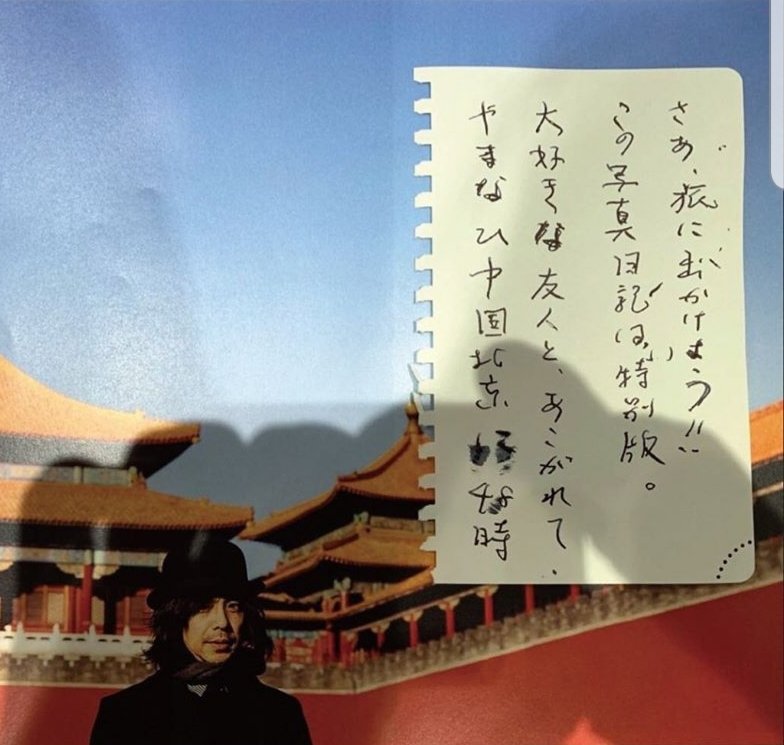 さあ、旅に出かけよう!!
この写真日記は、特別版。
大好きな友人と、あこがれて、
やまない中国北京、48時